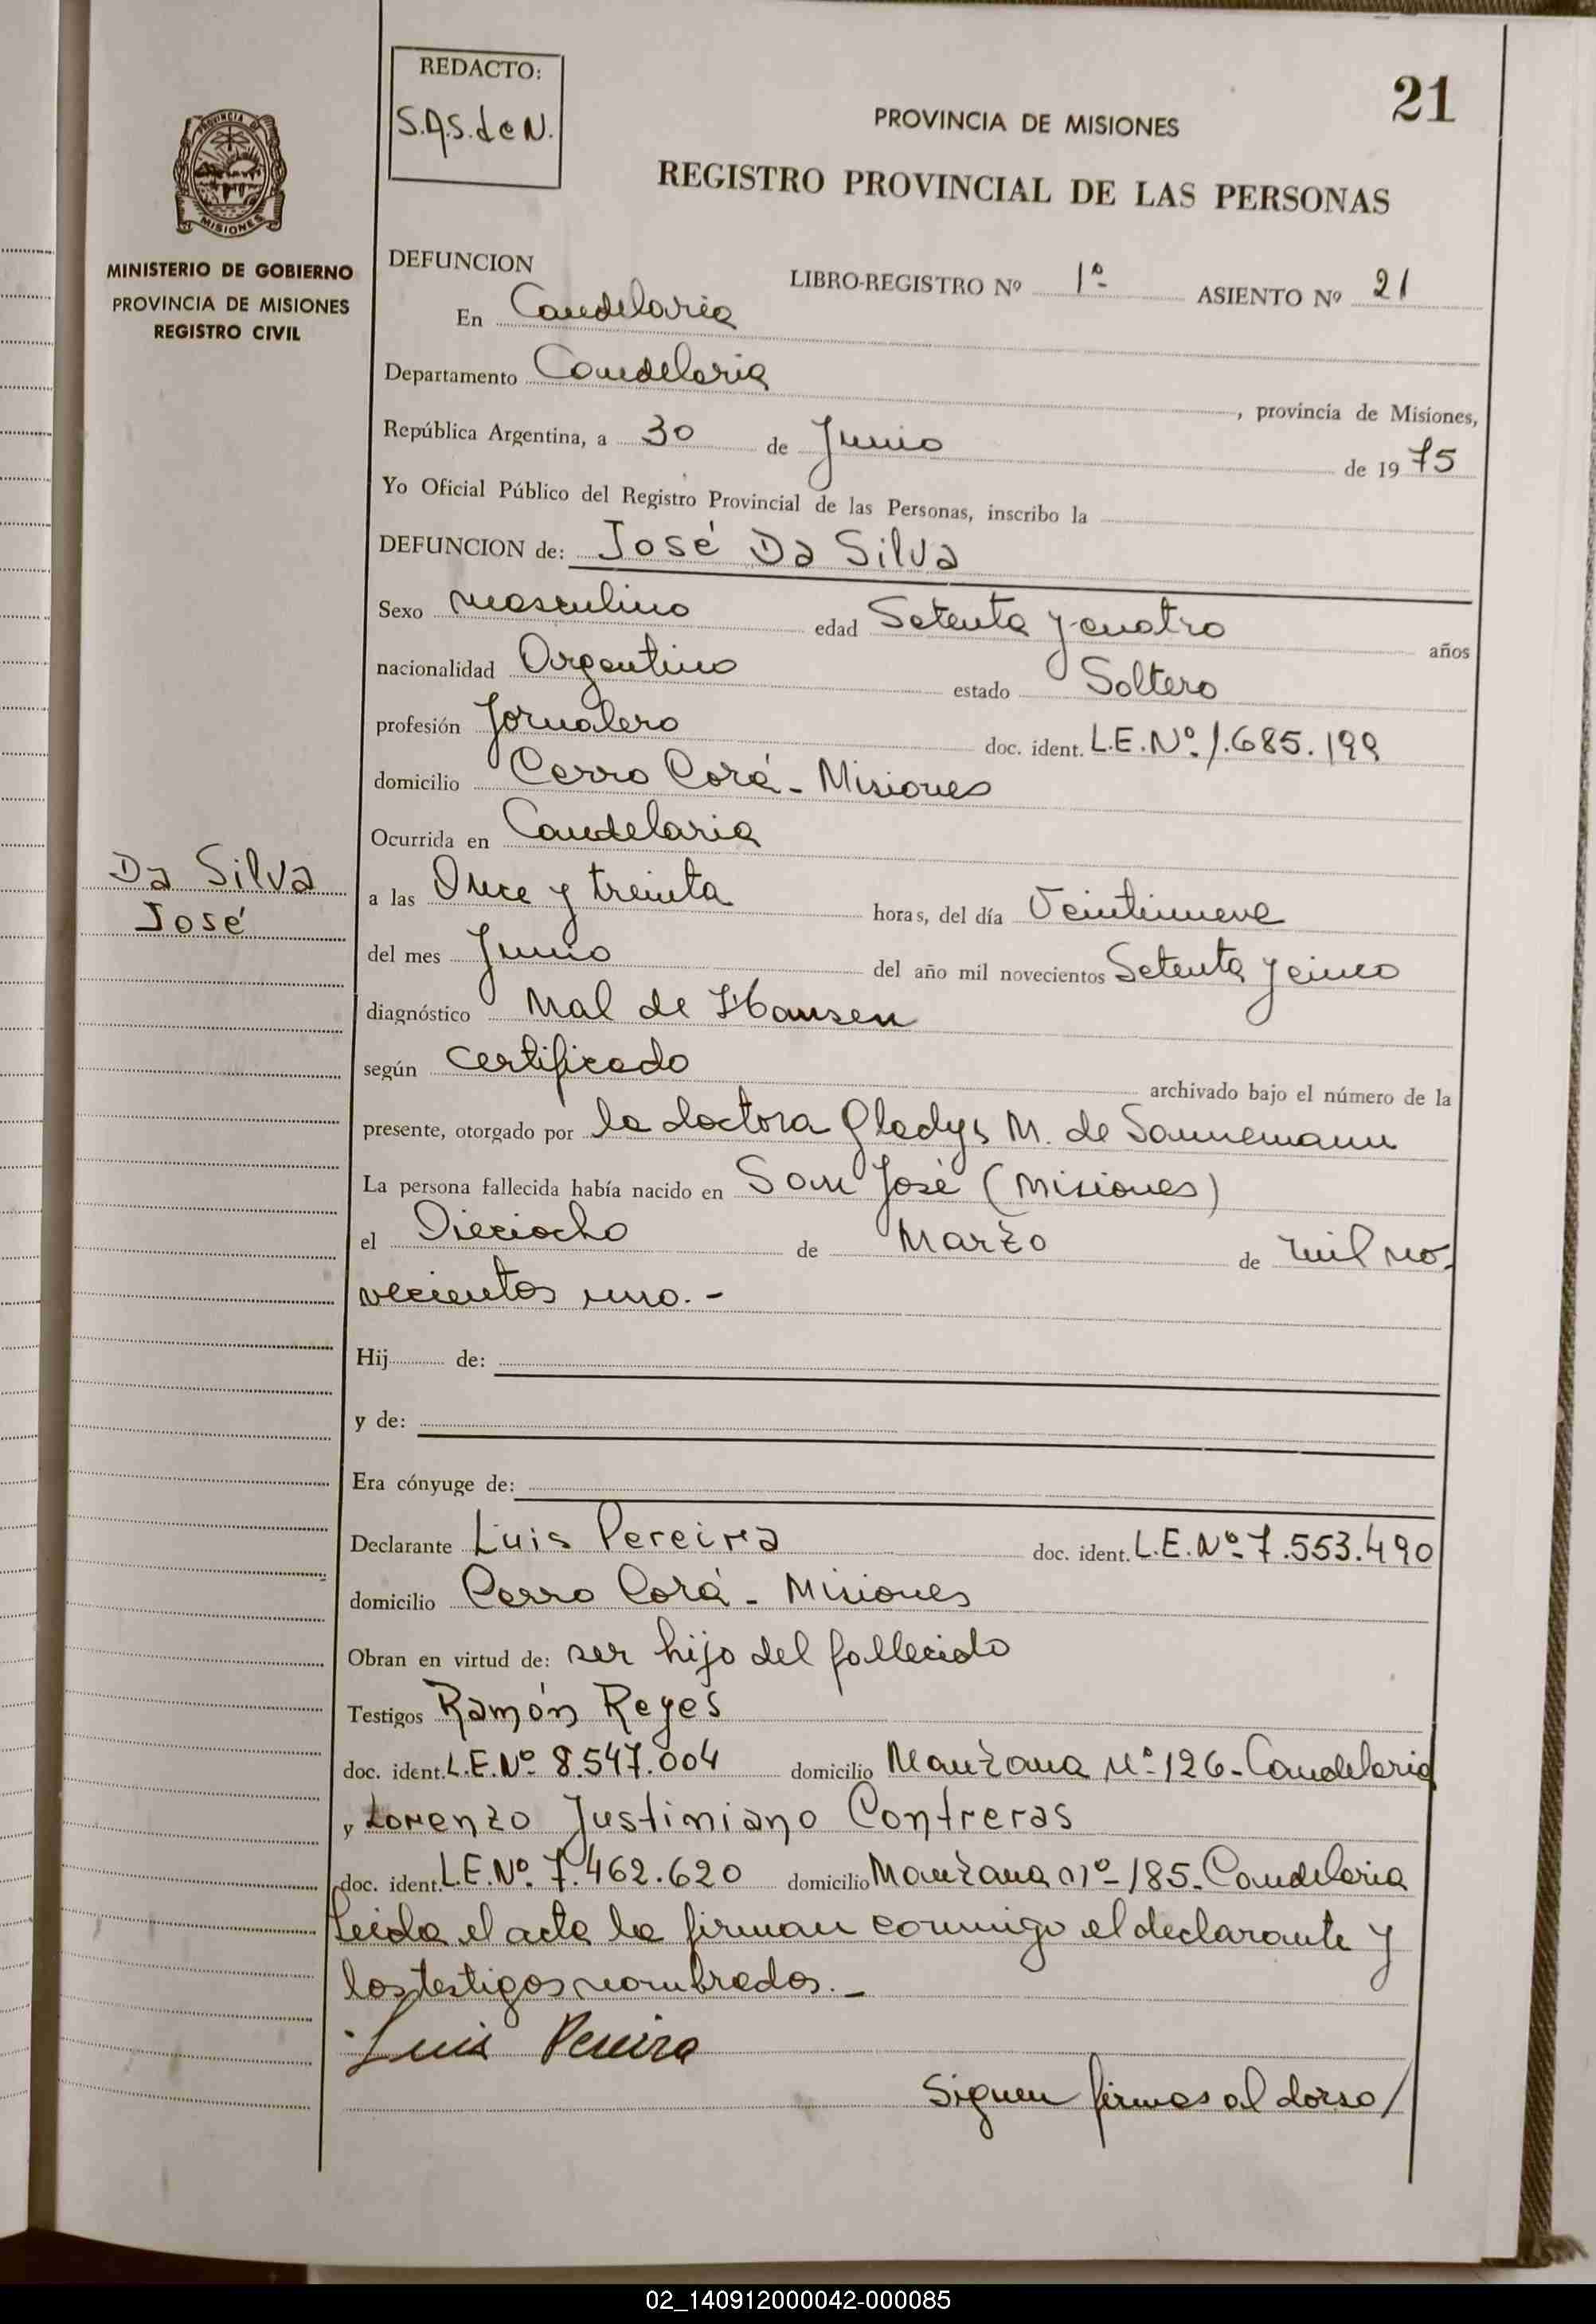 REDACTO:
S.A.S. de N.
21
PROVINCIA DE MISIONES
REGISTRO PROVINCIAL DE LAS PERSONAS
PROVINCIA DE
MISIONES
MINISTERIO DE GOBIERNO
PROVINCIA DE MISIONES
REGISTRO CIVIL
DEFUNCION
LIBRO-REGISTRO Nº 1º- ASIENTO Nº 21
En Candelaria
Departamento Candelaria, provincia de Misiones,
República Argentina, a 30 de Junio de 1975
Yo Oficial Público del Registro Provincial de las Personas, inscribo la
DEFUNCION de: José Da Silva
Sexo masculino edad Setenta y cuatro años
nacionalidad Argentino estado Soltero
profesión Jornalero doc. ident. L.E.Nº 1.685.199
domicilio Cerro Corá - Misiones
Ocurrida en Candelaria
Da Silva
José
a las Once y treinta horas, del día Veintinueve
del mes Junio del año mil novecientos Setenta y cinco
diagnóstico Mal de Hansen
según certificado archivado bajo el número de la
presente, otorgado por la doctora Gladys M. de Sannemann
La persona fallecida había nacido en San José (Misiones)
el Dieciocho de Marzo de mil no-
vecientos uno.-
Hij de:
y de:
Era cónyuge de:
Declarante Luis Pereira doc. ident. L.E.Nº 7.553.490
domicilio Cerro Corá - Misiones
Obran en virtud de: ser hijo del fallecido
Testigos Ramón Reyes
doc. ident. L.E.Nº 8.547.004 domicilio Manzana Nº 126 - Candelaria
y Lorenzo Justiniano Contreras
doc. ident. L.E.Nº 7.462.620 domicilio Manzana nº 185 - Candelaria
Leida el acta la firman conmigo el declarante y
los testigos nombrados.-
Luis Pereira
Siguen firmas al dorso/
02_140912000042-000085